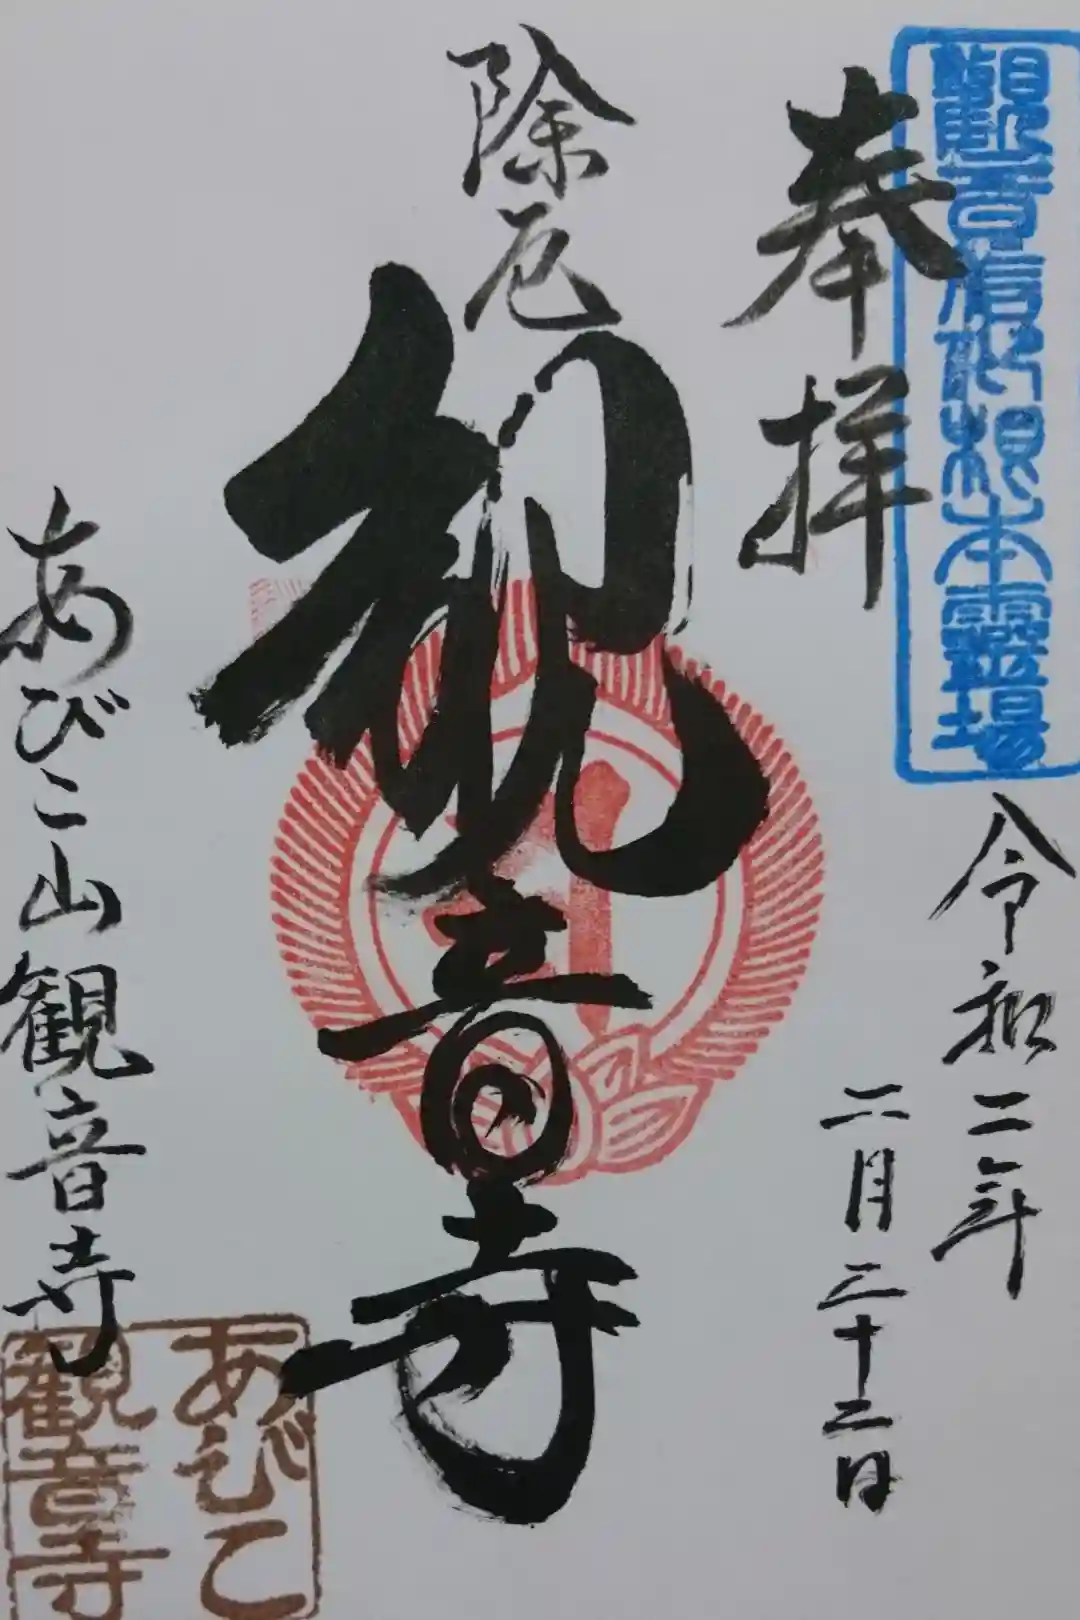 觀音信仰根本霊場
奉拝
令和二年
二月二十三日
除厄
観音寺
あびこ山観音寺
あびこ
観音寺